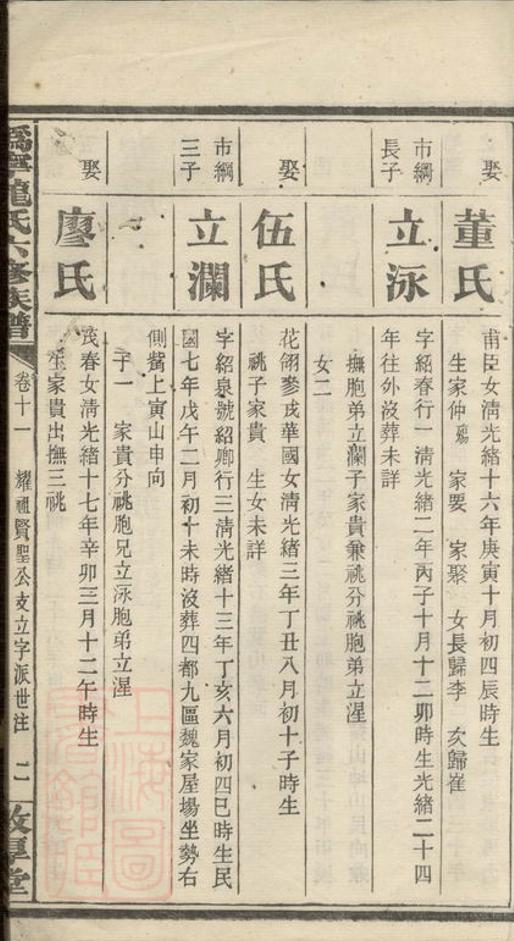 娶
董氏
甫臣女淸光緖十六年庚寅十月初四辰時生
生家仲殤 家要 家聚 女長歸李 次歸崔
市綱
長子
立泳
字紹春行一淸光緖二年丙子十月十二卯時生光緖二十四
年往外沒葬未詳
撫胞弟立瀾子家貴兼祧分祧胞弟立湦
女二
娶
伍氏
花翎參戎華國女淸光緖三年丁丑八月初十子時生
祧子家貴 生女未詳
市綱
三子
立瀾
字紹泉號紹卿行三淸光緖十三年丁亥六月初四巳時生民
國七年戊午二月初十未時沒葬四都九區魏家屋場坐勢右
側嘴上寅山申向
子一 家貴分祧胞兄立泳胞弟立湦
娶
廖氏
茂春女淸光緖十七年辛卯三月十二午時生
生家貴出撫三祧
爲寧龍氏六修族譜
卷十一
耀祖賢聖公支立字派世注
二
敦厚堂
上海圖
書館藏